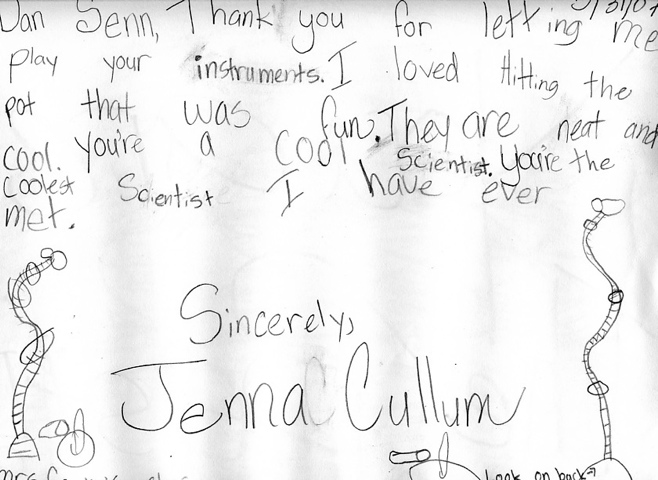 Dan Senn, Thank you for letting me
play your instruments. I loved Hitting the
pot that was fun. They are neat and
cool. You're a cool Scientist. You're the
coolest Scientist I have ever
met.
Sincerely,
Jenna Cullum
Look on back→